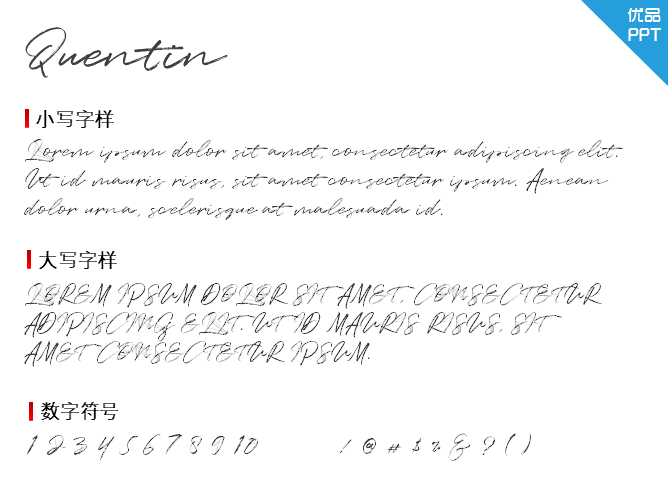 优品
PPT
Quentin
小写字样
Lorem ipsum dolor sit amet, consectetur adipiscing elit.
Ut id mauris risus, sit amet consectetur ipsum. Aenean
dolor urna, scelerisque at malesuada id.
大写字样
LOREM IPSUM DOLOR SIT AMET, CONSECTETUR
ADIPISCING ELIT. UT ID MAURIS RISUS, SIT
AMET CONSECTETUR IPSUM.
数字符号
1 2 3 4 5 6 7 8 9 10 ! @ # $ % & ? ( )